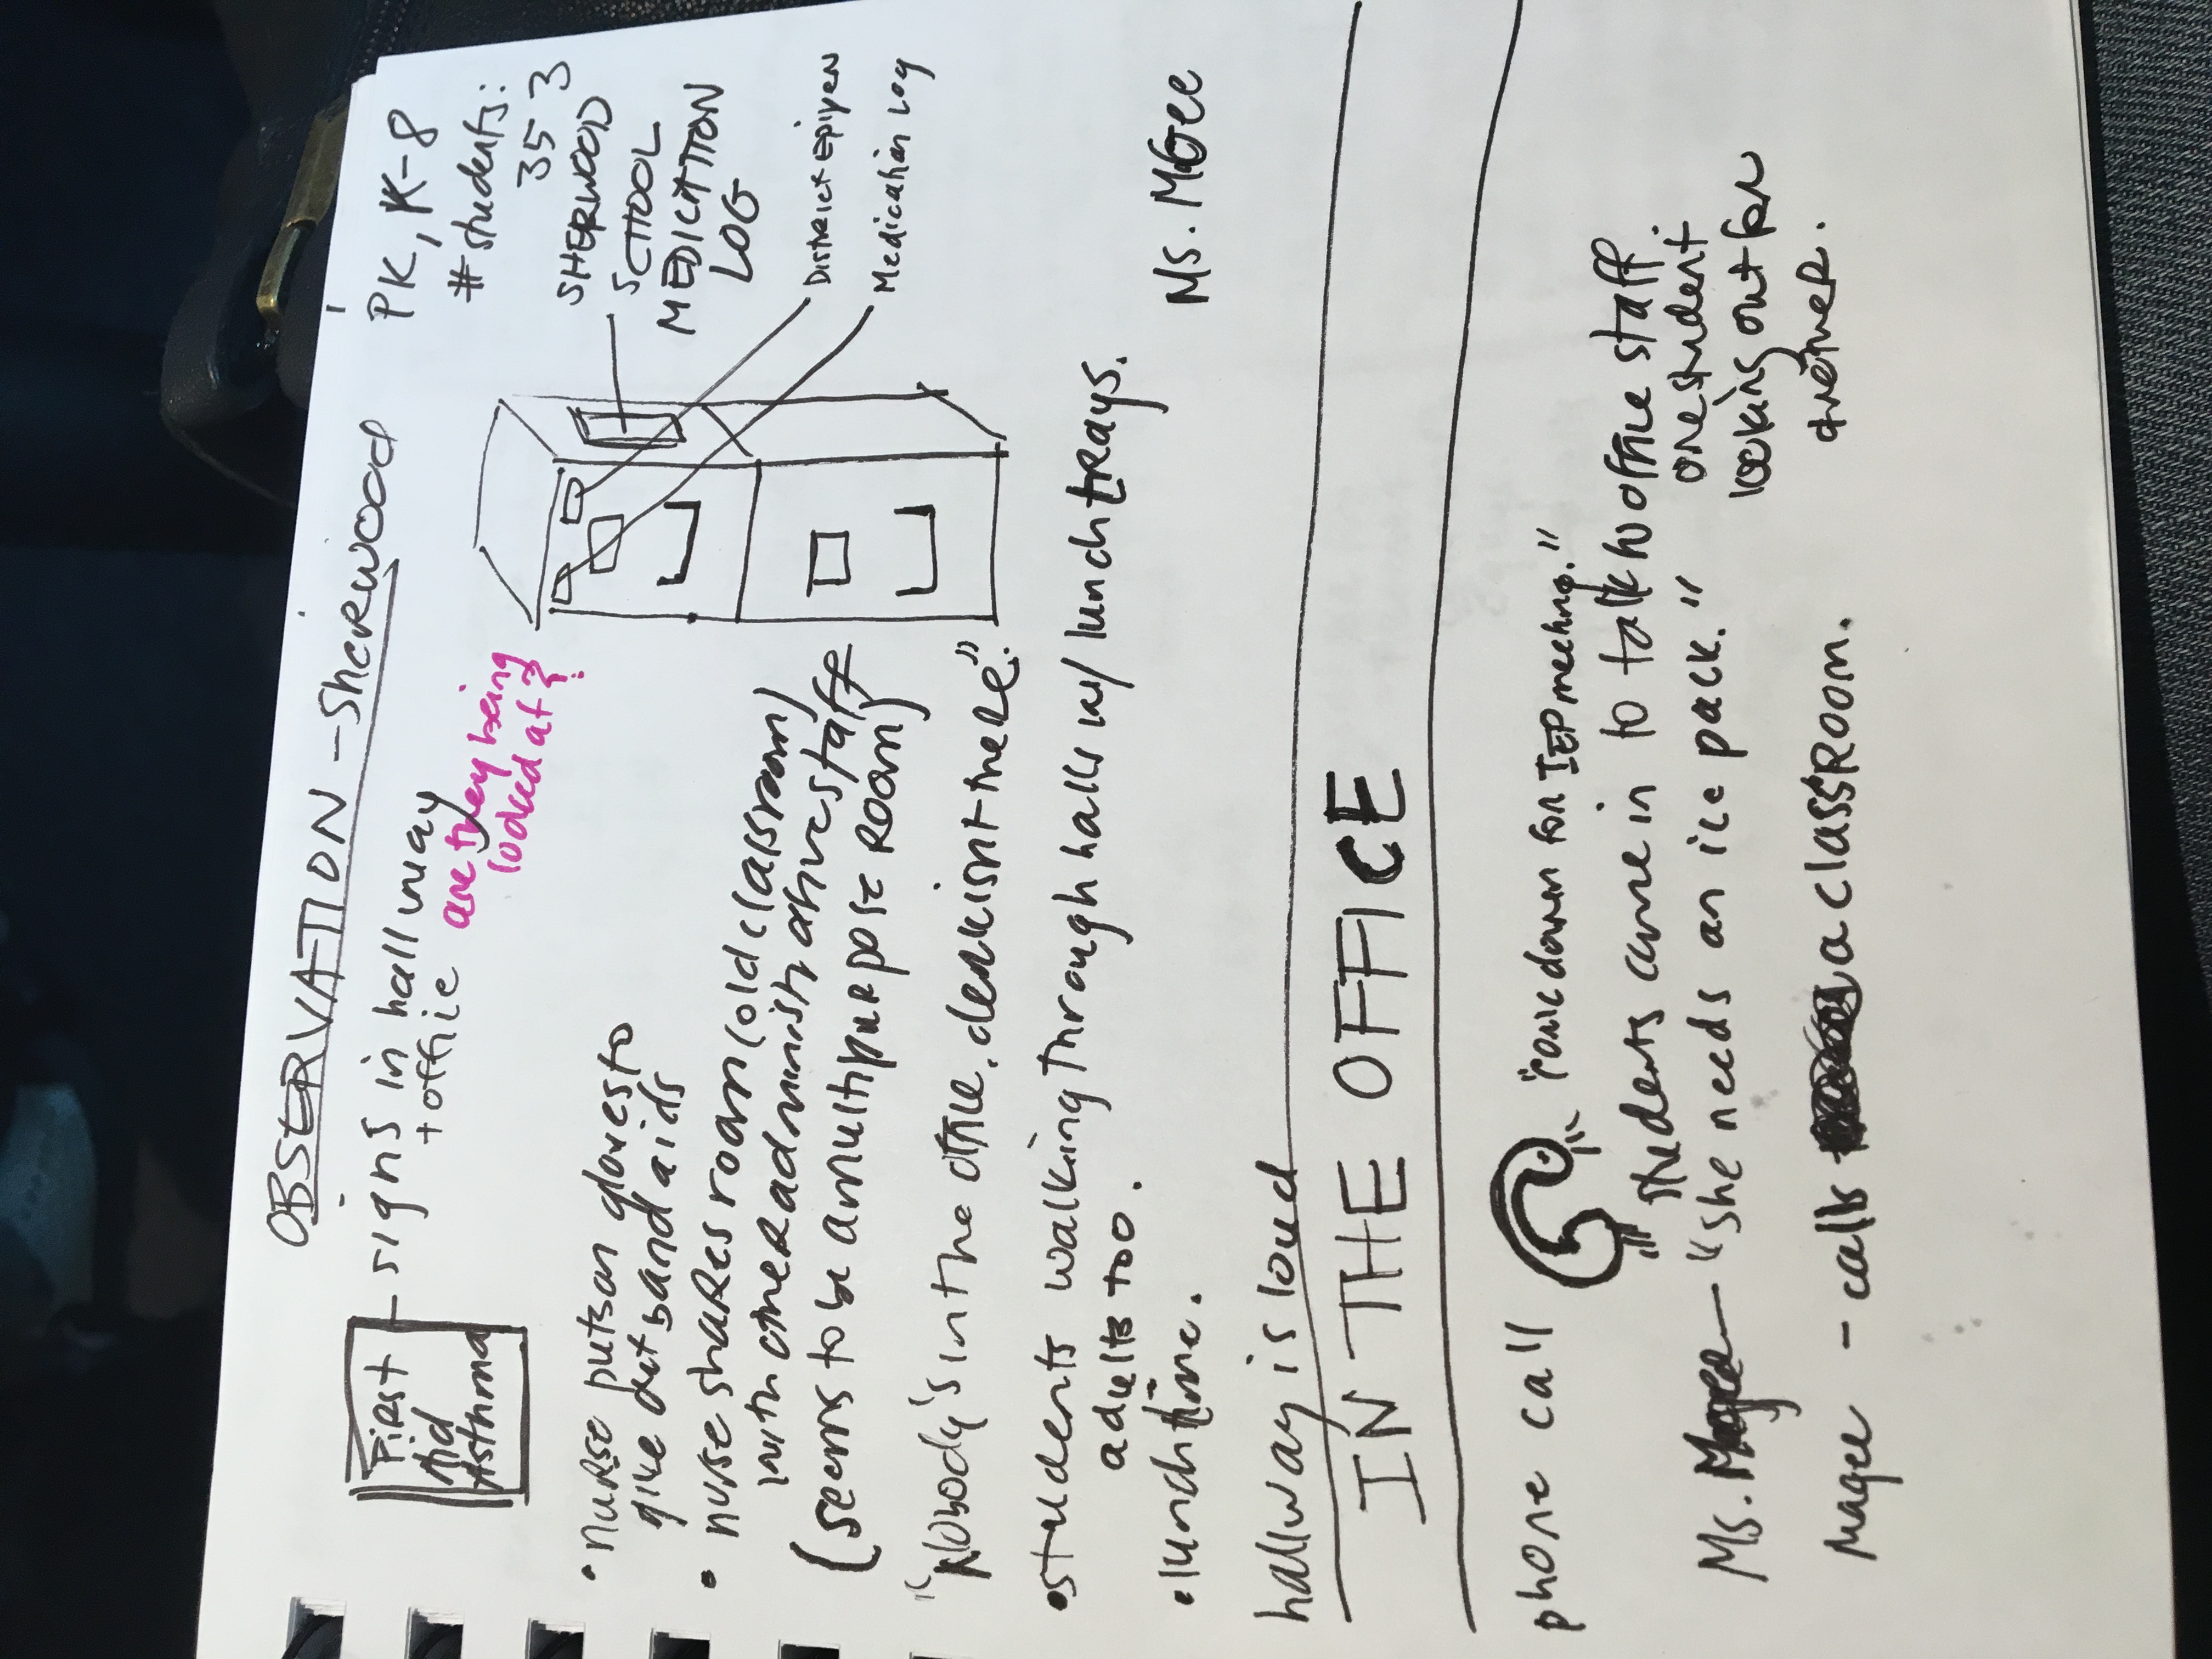 OBSERVATION - Sherwood
First
Aid
Asthma
- signs in hallway
+ office
are they being
looked at?
PK, K-8
# students:
353
SHERWOOD
SCHOOL
MEDICATION
LOG
District Epipen
Medication Log
• nurse puts on gloves to
give out band aids
• nurse shares room (old classroom)
with other administrative staff
(seems to be a multipurpose room)
"Nobody's in the office, clerk isnt there."
• students walking through halls w/ lunch trays.
adults too.
• lunch time.
Ms. McGee
hallway is loud
IN THE OFFICE
phone call
"come down for IEP meeting."
students came in to talk to office staff.
Ms. Magee — "she needs an ice pack."
one student
looking out for
another.
Magee - calls a classroom.